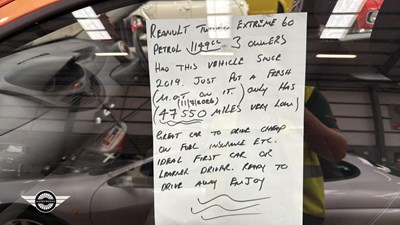 RENAULT TWINGO EXTREME 60
PETROL 1149cc 3 OWNERS
HAD THIS VEHICLE SINCE
2019. JUST PUT A FRESH
(M.O.T ON IT.) ONLY HAS
(11/8/2026)
(47550 MILES VERY LOW)
GREAT CAR TO DRIVE CHEAP
ON FUEL INSURANCE ETC.
IDEAL FIRST CAR OR
LEARNER DRIVER. READY TO
DRIVE AWAY ENJOY